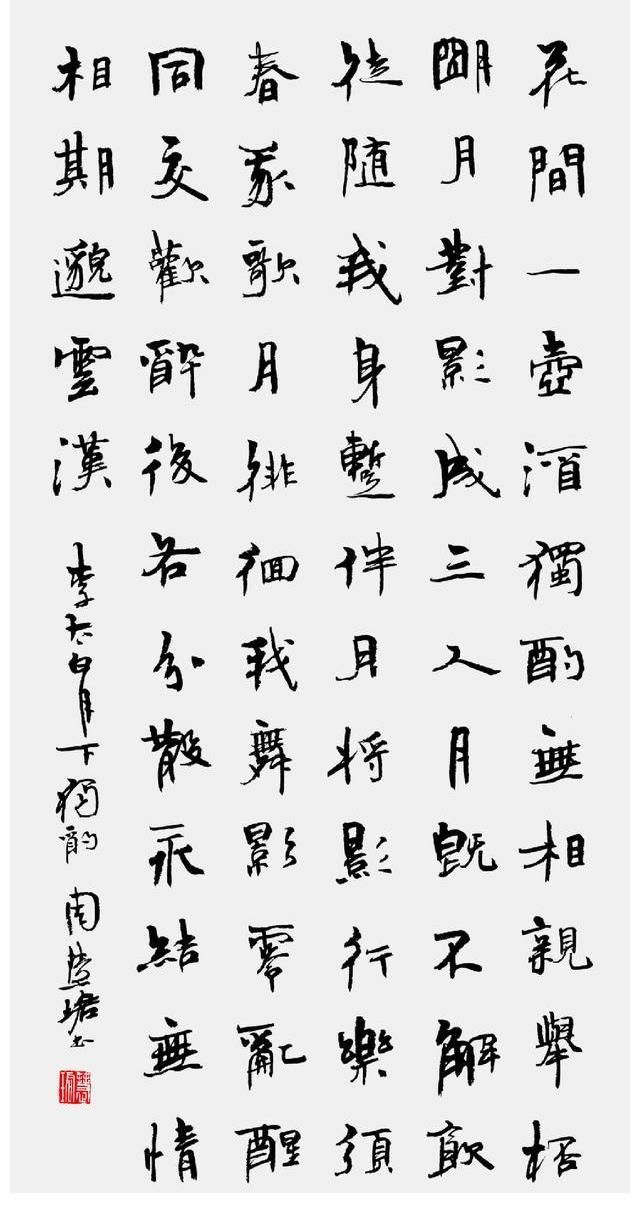 花間一壺酒獨酌無相親舉桮
朙月對影成三人月既不解飲
徒随我身蹔伴月将影行樂須
春我歌月徘徊我舞影零亂醒
同交歡醉後各分散永結無情
相期邈雲漢
李太白月下獨酌 周慧珺書